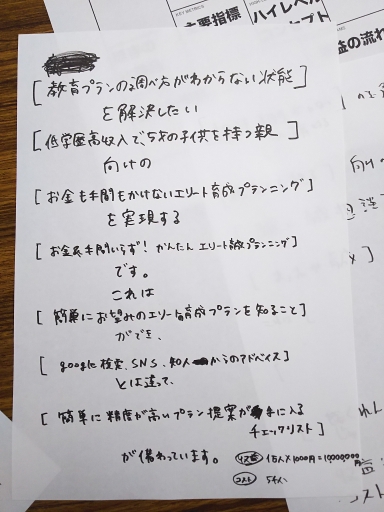 主要指標
ハイレベル
プト
益の流れ
[教育プランの調べ方がわからない状態]
を解決したい
[低学歴高収入で5才の子供を持つ親]
向けの
[お金も手間もかけないエリート育成プランニング]
を実現する
[お金も手間いらず! かんたん エリート育成プランニング]
です。
これは
[簡単にお望みのエリート育成プランを知ること]
ができ、
[google検索、SNS、知人からのアドバイス]
とは違って、
[簡単に精度が高いプラン提案が手に入る
チェックリスト]
が備わっています。
1万人×1000円=10,000,000円
コスト